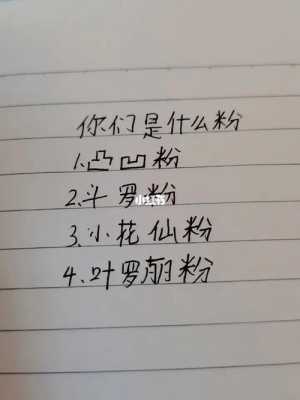 你们是什么粉
1.凸凹粉
2.斗罗粉
小红书
3.小花仙粉
4.叶罗丽粉